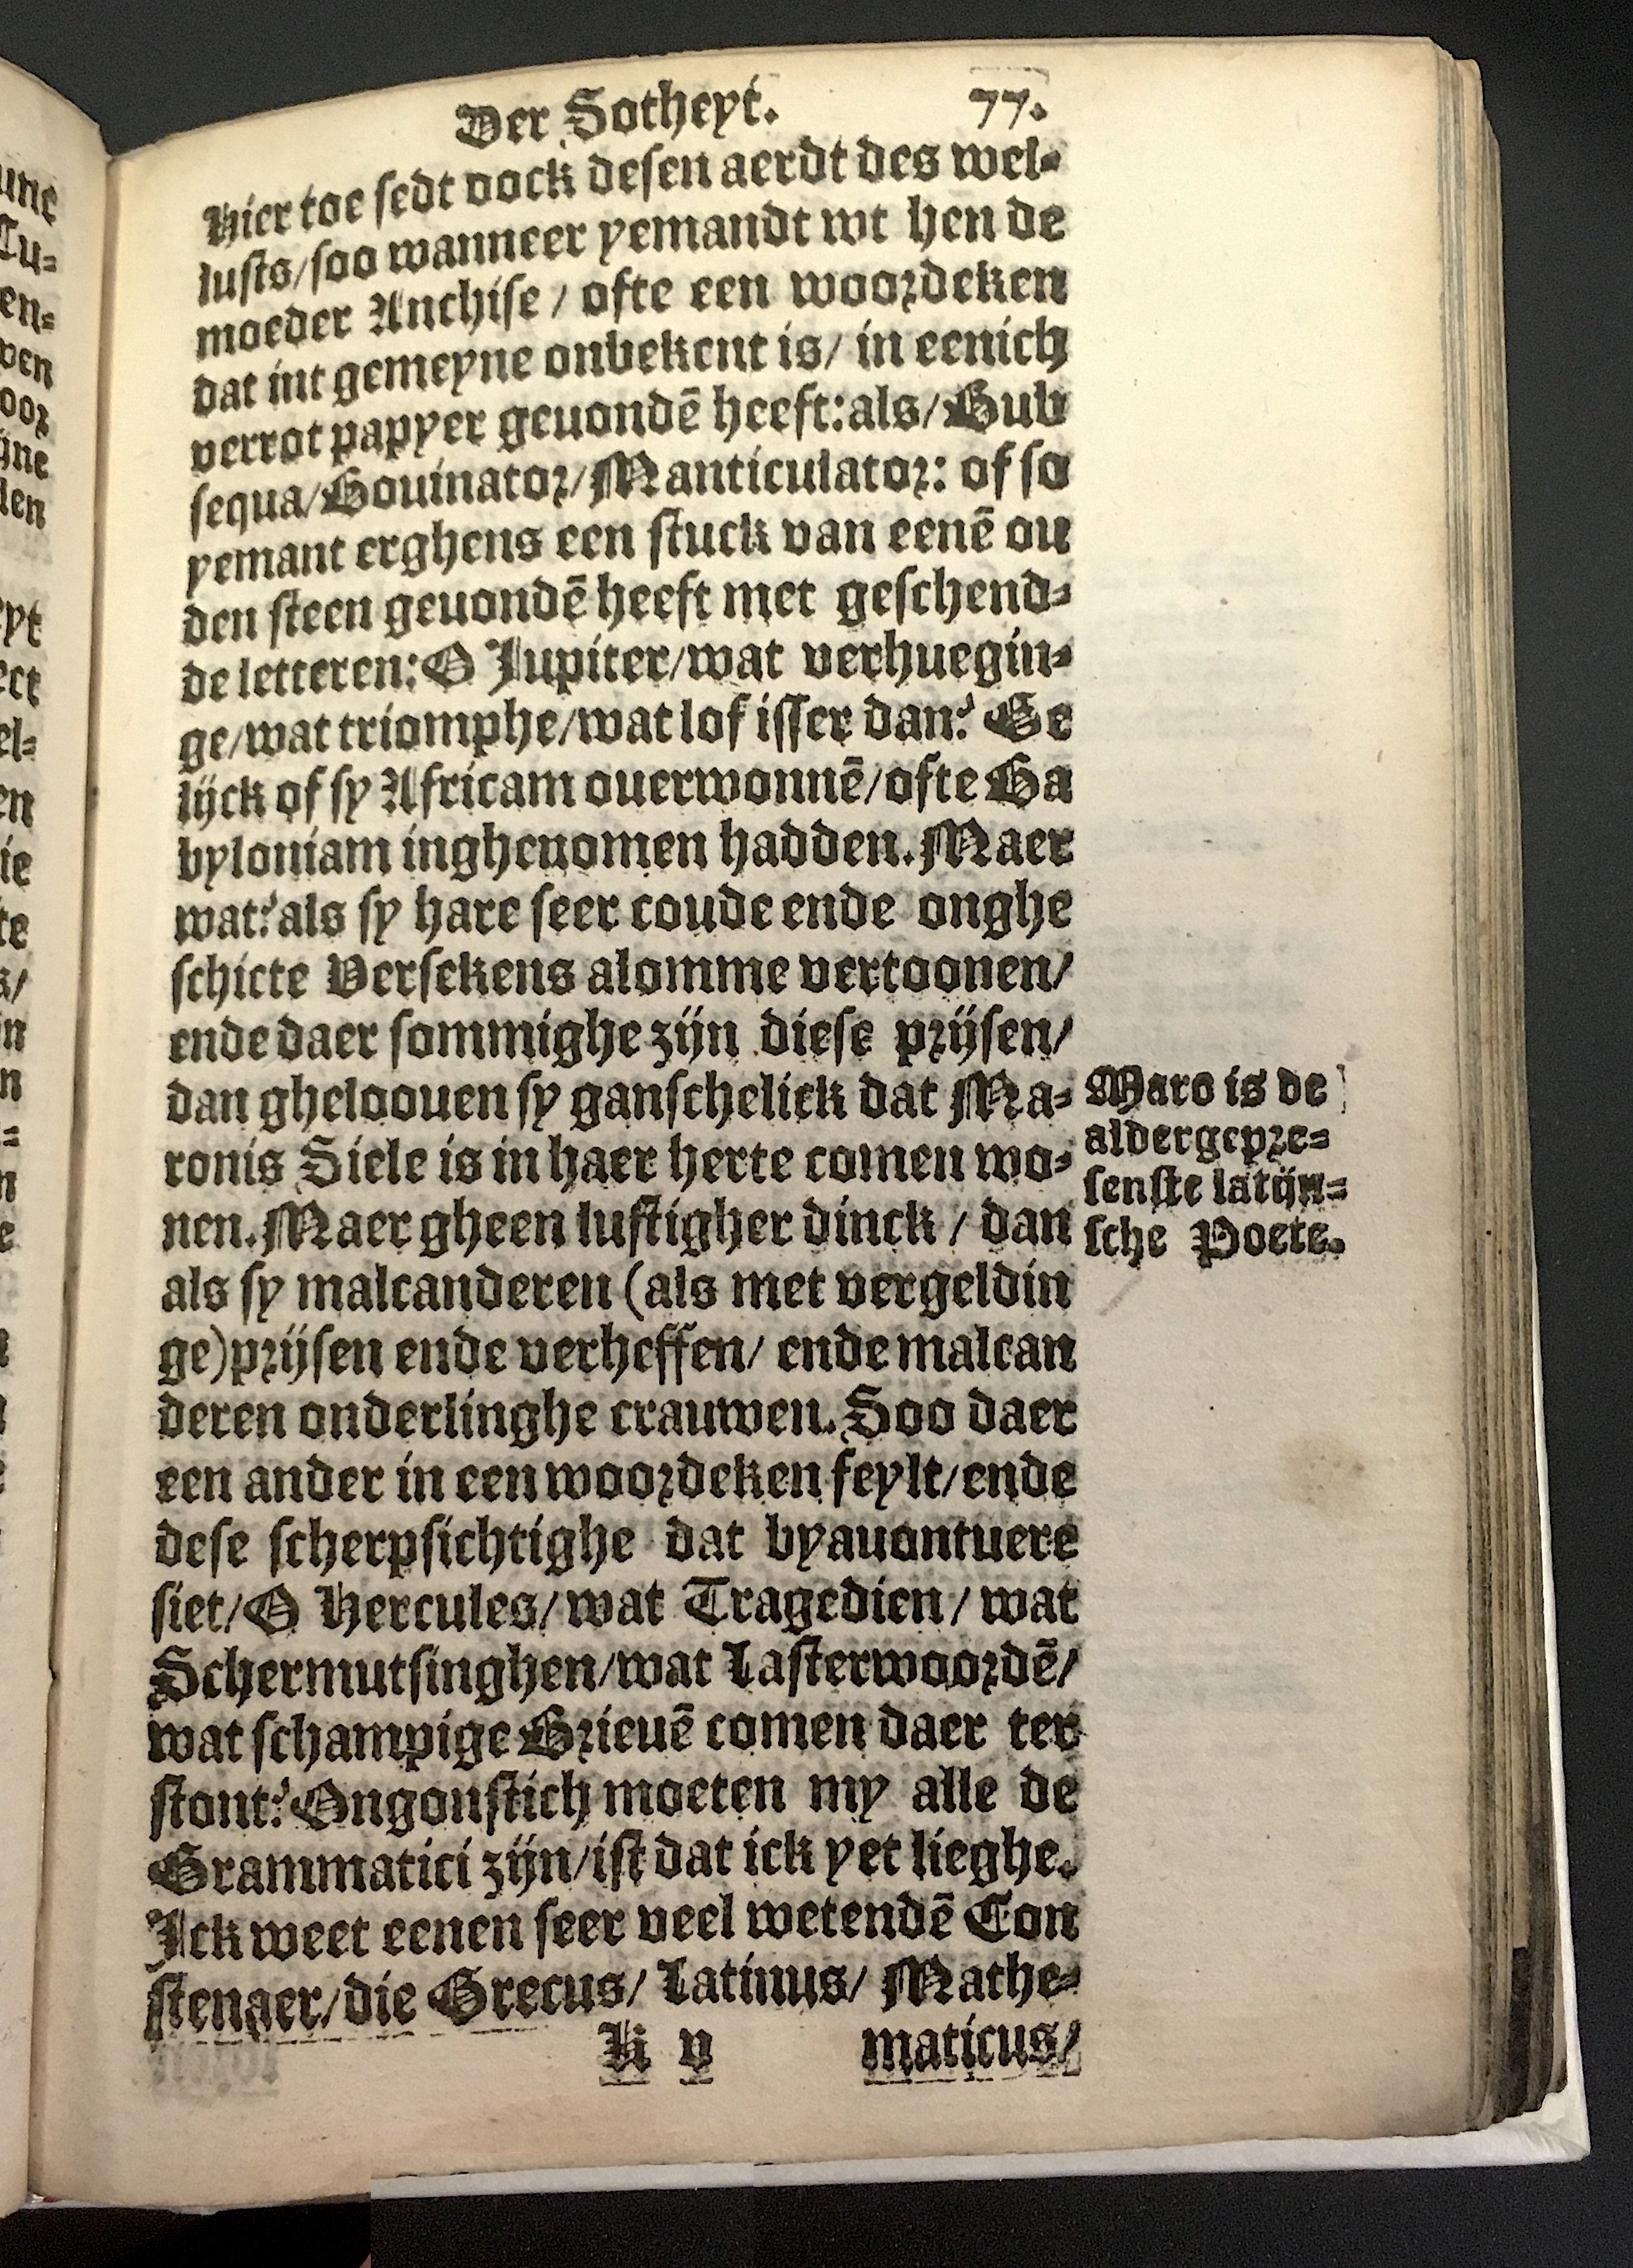 Der Sotheyt. 77.
Hier toe sedt oock desen aerdt des wel-
lusts/soo wanneer yemandt wt hen de
moeder Anchise / ofte een woordeken
dat int gemeyne onbekent is/ in eenich
verrot papyer geuondē heeft:als/Bub
sequa/Bouinator/Manticulator: of so
yemant erghens een stuck van eenē ou
den steen geuondē heeft met geschend-
de letteren:O Jupiter/wat verhuegin-
ge/wat triomphe/wat lof isser dan? Ge
lijck of sy Africam ouerwonnē/ofte Ba
byloniam inghenomen hadden. Maer
wat?als sy hare seer coude ende onghe
schicte Versekens alomme vertoonen/
ende daer sommighe zijn diese prijsen/
dan gheloouen sy ganschelick dat Ma-
ronis Siele is in haer herte comen wo-
nen. Maer gheen lustigher dinck / dan
als sy malcanderen (als met vergeldin
ge)prijsen ende verheffen/ ende malcan
deren onderlinghe crauwen. Soo daer
een ander in een woordeken feylt/ende
dese scherpsichtighe dat byauontuere
siet/O Hercules/wat Tragedien/ wat
Schermutsinghen/wat Lasterwoordē/
wat schampige Brieuē comen daer ter
stont? Ongonstich moeten my alle de
Grammatici zijn/ist dat ick yet lieghe.
Ick weet eenen seer veel wetendē Con
stenaer/die Grecus/ Latinus/ Mathe-
K v maticus/
Maro is de
aldergepre-
senste latijn-
sche Poete.